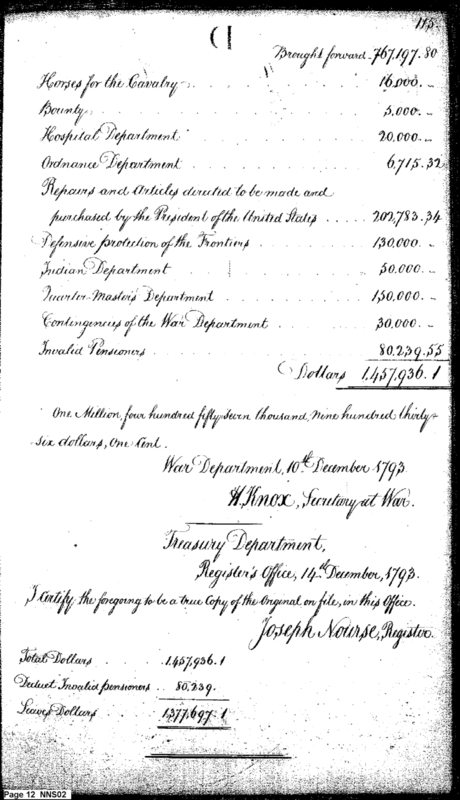 115.
Brought forward 767,197.80
Horses for the Cavalry 16,000. –
Bounty 5,000. –
Hospital Department 20,000. –
Ordnance Department 6,715.32
Repairs and Articles directed to be made and
purchased by the President of the United States 202,783.34
Defensive protection of the Frontiers 130,000. –
Indian Department 50,000. –
Quarter-Master's Department 150,000. –
Contingencies of the War Department 30,000. –
Invalid Pensioners 80,239.55
Dollars 1,457,936.1
One Million, four hundred fifty seven thousand, nine hundred thirty-
six dollars, One Cent.
War Department, 10th December 1793.
H. Knox, Secretary at War.
Treasury Department,
Register's Office, 14th December, 1793.
I certify the foregoing to be a true Copy of the Original on file, in this Office.
Joseph Nourse, Register.
Total Dollars 1,457,936.1
Deduct Invalid pensioners 80,239.
Leaves Dollars 1,377,697.1
Page 12 NNS02